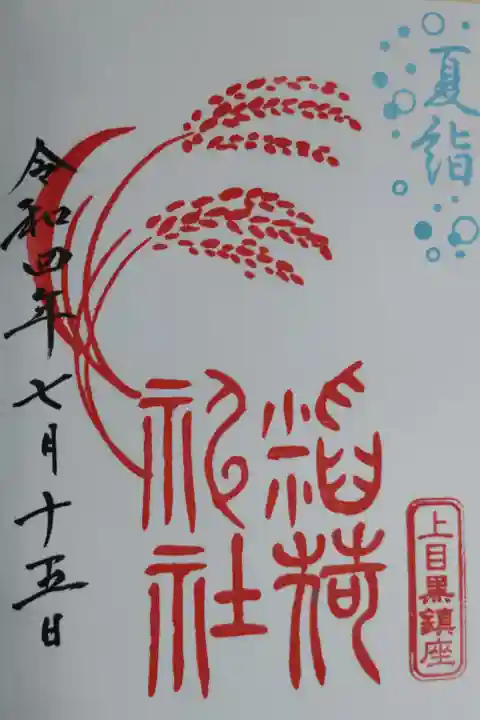 夏詣
上目黒鎮座
稲荷
神社
令和四年七月十五日